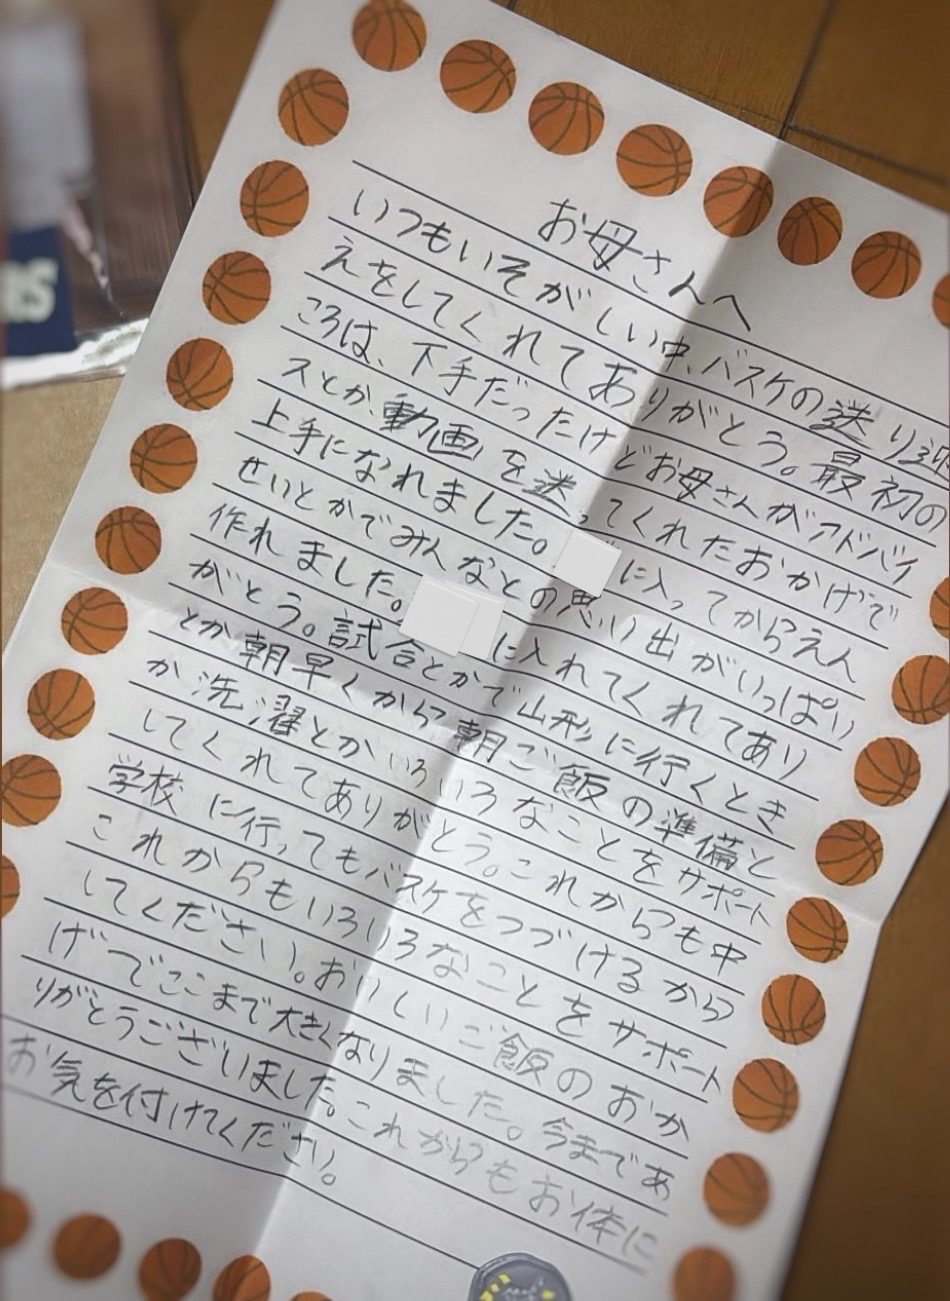 お母さんへ
いつもいそがしい中、バスケの送り迎
えをしてくれてありがとう。最初の
ころは、下手だったけどお母さんがアドバイ
スとか、動画を送ってくれたおかげで
上手になれました。に入ってからえん
せいとかでみんなとの思い出がいっぱい
作れました。に入れてくれてあり
がとう。試合とかで山形に行くとき
とか朝早くから朝ご飯の準備と
か洗濯とかいろいろなことをサポート
してくれてありがとう。これからも中
学校に行ってもバスケをつづけるから
これからもいろいろなことをサポート
してください。おいしいご飯のおか
げでここまで大きくなりました。今まであ
りがとうございました。これからもお体に
お気を付けてください。